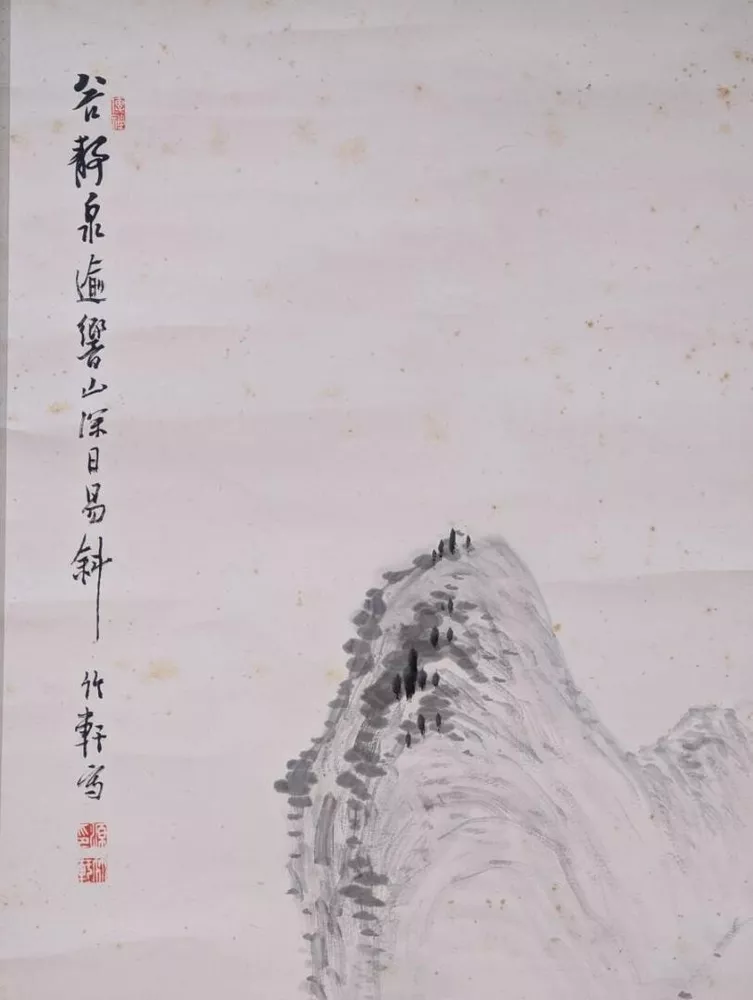 谷静泉逾響山深日易斜
竹軒写